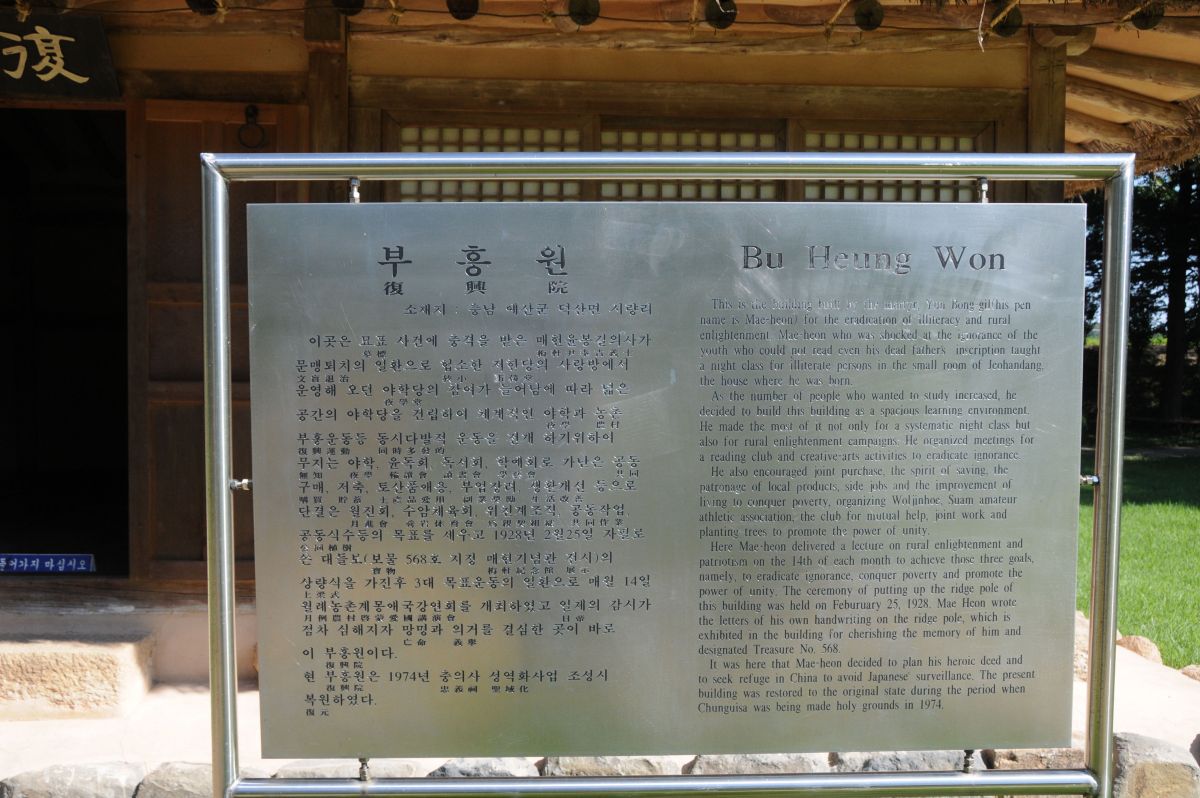 復
부 흥 원
復 興 院
소재지 : 충남 예산군 덕산면 시량리
이곳은 묘표 사건에 충격을 받은 매헌윤봉길의사가
墓標 梅軒尹奉吉義士
문맹퇴치의 일환으로 협소한 저한당의 사랑방에서
文盲退治 狹小
운영해 오던 야학당의 참여가 늘어남에 따라 넓은
夜學堂
공간의 야학당을 건립하여 체계적인 야학과 농촌
夜學 農村
부흥운동등 동시다발적 운동을 전개 하기위하여
復興運動 同時多發的
무지는 야학, 윤독회, 독서회, 학예회로 가난은 공동
無知 夜學 輪讀會 讀書會 學藝會 共同
구매, 저축, 토산품애용, 부업장려, 생활개선 등으로
購買 貯蓄 土産品愛用 副業奬勵 生活改善
단결은 월진회, 수암체육회, 위친계조직, 공동작업,
月進會 修岩體育會 爲親契組織 共同作業
공동식수등의 목표를 세우고 1928년 2월25일 자필로
公同植樹
쓴 대들보(보물 568호 지정 매헌기념관 전시)의
寶物 梅軒紀念館 展示
상량식을 가진후 3대 목표운동의 일환으로 매월 14일
上梁式
월례농촌계몽애국강연회를 개최하였고 일제의 감시가
月例農村啓蒙愛國講演會 日帝
점차 심해지자 망명과 의거를 결심한 곳이 바로
亡命 義擧
이 부흥원이다.
復興院
현 부흥원은 1974년 충의사 성역화사업 조성시
復興院 忠義祠 聖域化
복원하였다.
復元
Bu Heung Won
This is the building built by the martyr, Yun Bong-gil(his pen
name is Mae-heon) for the eradication of illiteracy and rural
enlightenment. Mae-heon who was shocked at the ignorance of the
youth who could not read even his dead father's inscription taught
a night class for illiterate persons in the small room of Jeohandang,
the house where he was born.
As the number of people who wanted to study increased, he
decided to build this building as a spacious learning environment.
He made the most of it not only for a systematic night class but
also for rural enlightenment campaigns. He organized meetings for
a reading club and creative-arts activities to eradicate ignorance.
He also encouraged joint purchase, the spirit of saving, the
patronage of local products, side jobs and the improvement of
living to conquer poverty, organizing Woljinhoe, Suam amateur
athletic association, the club for mutual help, joint work and
planting trees to promote the power of unity.
Here Mae-heon delivered a lecture on rural enlightenment and
patriotism on the 14th of each month to achieve those three goals,
namely, to eradicate ignorance, conquer poverty and promote the
power of unity. The ceremony of putting up the ridge pole of
this building was held on Feburuary 25, 1928. Mae Heon wrote
the letters of his own handwriting on the ridge pole, which is
exhibited in the building for cherishing the memory of him and
designated Treasure No. 568.
It was here that Mae-heon decided to plan his heroic deed and
to seek refuge in China to avoid Japanese' surveillance. The present
building was restored to the original state during the period when
Chunguisa was being made holy grounds in 1974.
들어가지 마십시오